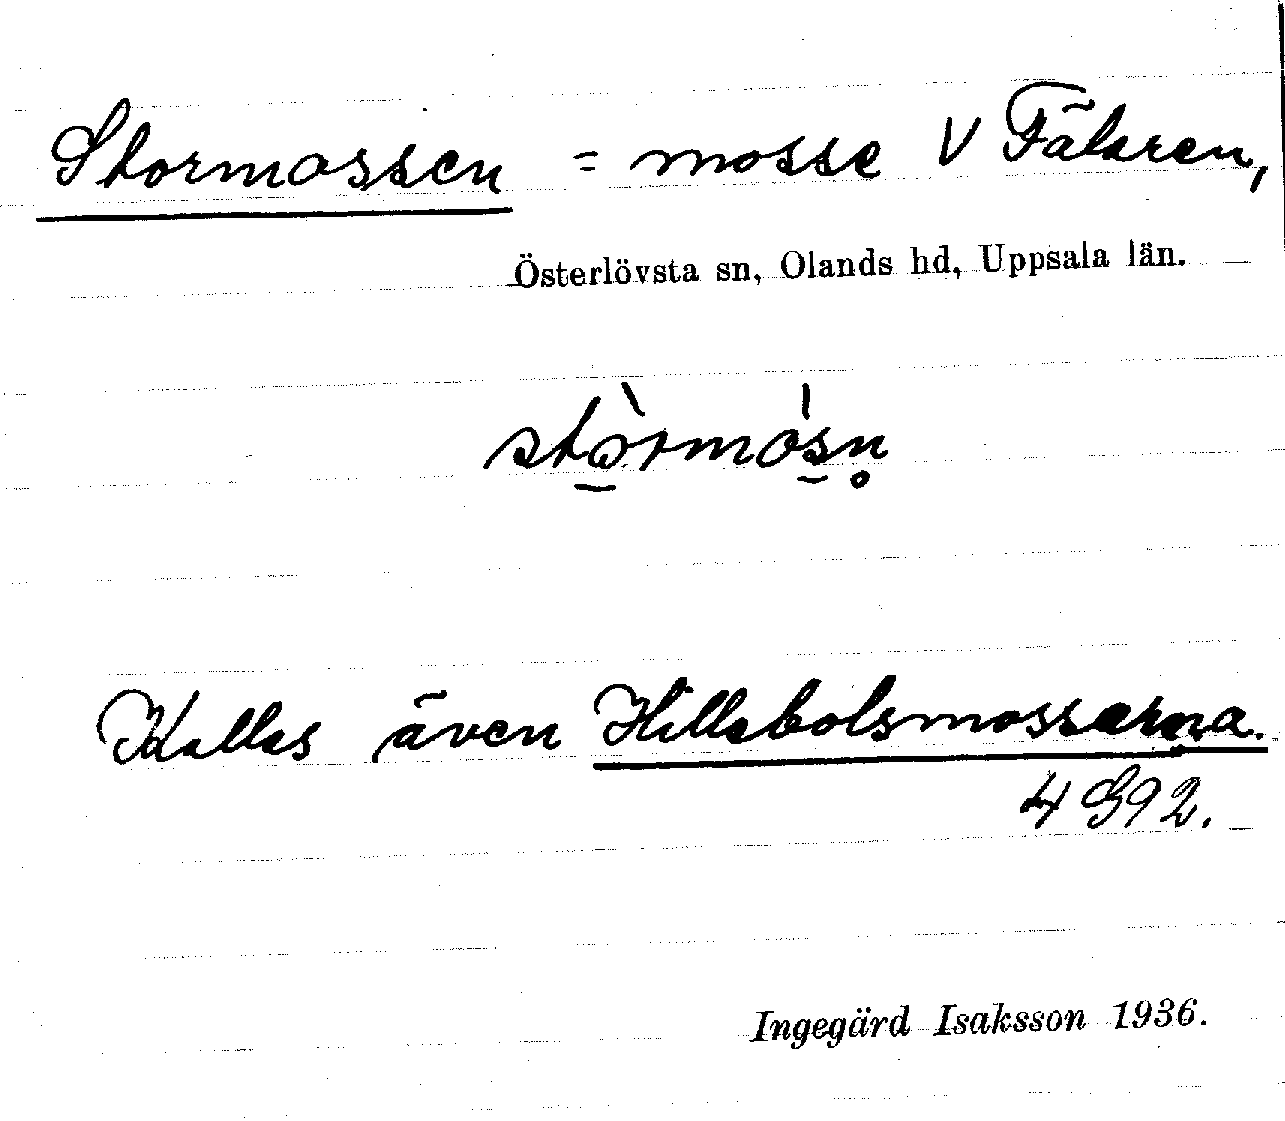 Stormossen = mosse V Fälaren,
Österlövsta sn, Olands hd, Uppsala län.
Kallas även Hillebolsmossarna.
4 G92.
Ingegärd Isaksson 1936.